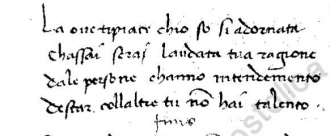 La oue tipiace chio so si adornata
chassai serai laudata tua ragione
dale persone channo intendemento
destar collaltre tu nō hai talento.
finis